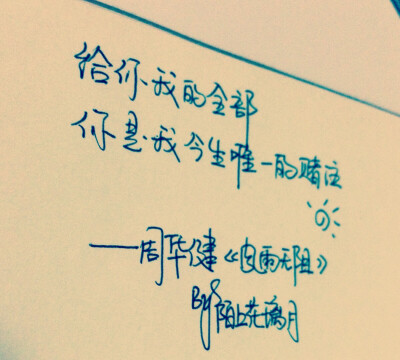 给你我的全部
你是我今生唯一的赌注
——周华健《风雨无阻》
By 陌上花璃月